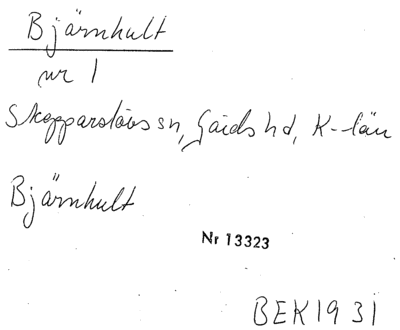 Bjärnhult
nr 1
Skepparslövs sn, Gärds hd, K-län
Bjärnhult
Nr 13323
BEK 1931